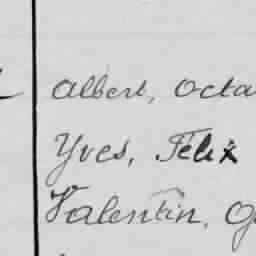 Albert, Octa
Yves, Félix
Valentin, G